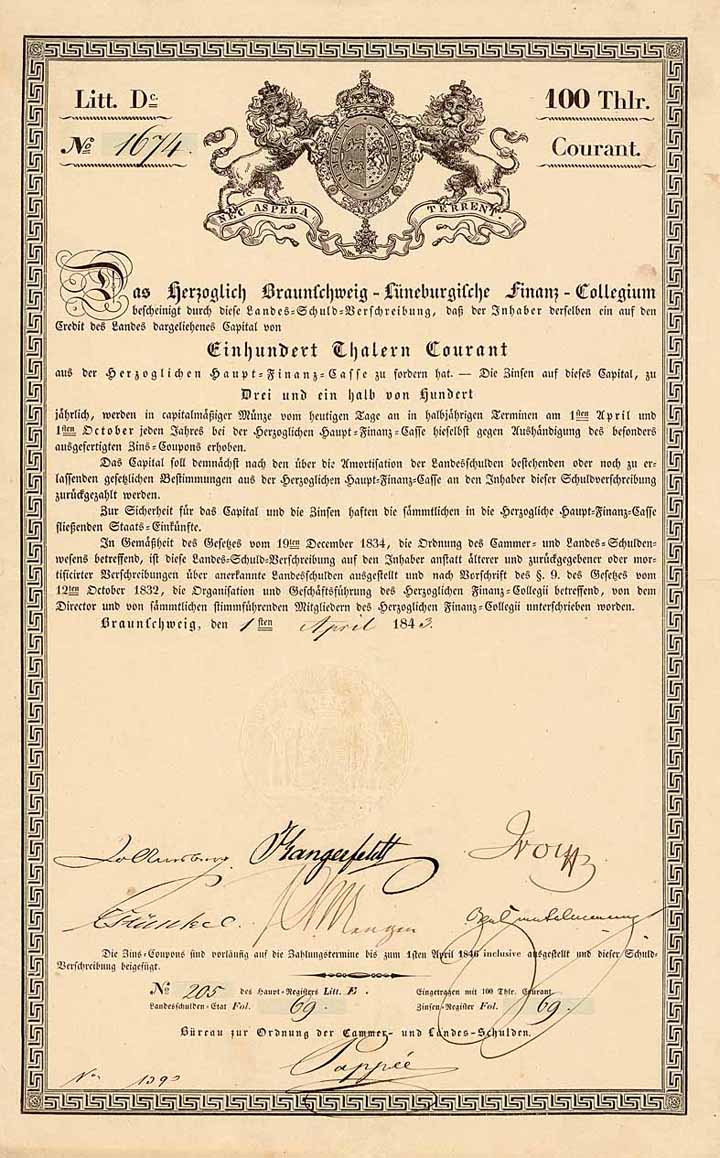 Litt. Dc.
100 Thlr.
No 1674.
Courant.
NEC ASPERA TERRENT
Das Herzoglich Braunschweig-Lüneburgische Finanz-Collegium
bescheinigt durch diese Landes-Schuld-Verschreibung, daß der Inhaber derselben ein auf den
Credit des Landes dargeliehenes Capital von
Einhundert Thalern Courant
aus der Herzoglichen Haupt-Finanz-Casse zu fordern hat. — Die Zinsen auf dieses Capital, zu
Drei und ein halb von Hundert
jährlich, werden in capitalmäßiger Münze vom heutigen Tage an in halbjährigen Terminen am 1sten April und
1sten October jeden Jahres bei der Herzoglichen Haupt-Finanz-Casse hieselbst gegen Aushändigung des besonders
ausgefertigten Zins-Coupons erhoben.
Das Capital soll demnächst nach den über die Amortisation der Landesschulden bestehenden oder noch zu er-
lassenden gesetzlichen Bestimmungen aus der Herzoglichen Haupt-Finanz-Casse an den Inhaber dieser Schuldverschreibung
zurückgezahlt werden.
Zur Sicherheit für das Capital und die Zinsen haften die sämmtlichen in die Herzogliche Haupt-Finanz-Casse
fließenden Staats-Einkünfte.
In Gemäßheit des Gesetzes vom 19ten December 1834, die Ordnung des Cammer- und Landes-Schulden-
wesens betreffend, ist diese Landes-Schuld-Verschreibung auf den Inhaber anstatt älterer und zurückgegebener oder mor-
tificirter Verschreibungen über anerkannte Landesschulden ausgestellt und nach Vorschrift des §. 9. des Gesetzes vom
12ten October 1832, die Organisation und Geschäftsführung des Herzoglichen Finanz-Collegii betreffend, von dem
Director und von sämmtlichen stimmführenden Mitgliedern des Herzoglichen Finanz-Collegii unterschrieben worden.
Braunschweig, den 1sten April 1843.
Langerfeldt
Die Zins-Coupons sind vorläufig auf die Zahlungstermine bis zum 1sten April 1846 inclusive ausgestellt und dieser Schuld-
Verschreibung beigefügt.
No 205 des Haupt-Registers Litt. E.
Eingetragen mit 100 Thlr. Courant
Landesschulden-Etat Fol. 69.
Zinsen-Register Fol. 69.
Büreau zur Ordnung der Cammer- und Landes-Schulden.
Pappée